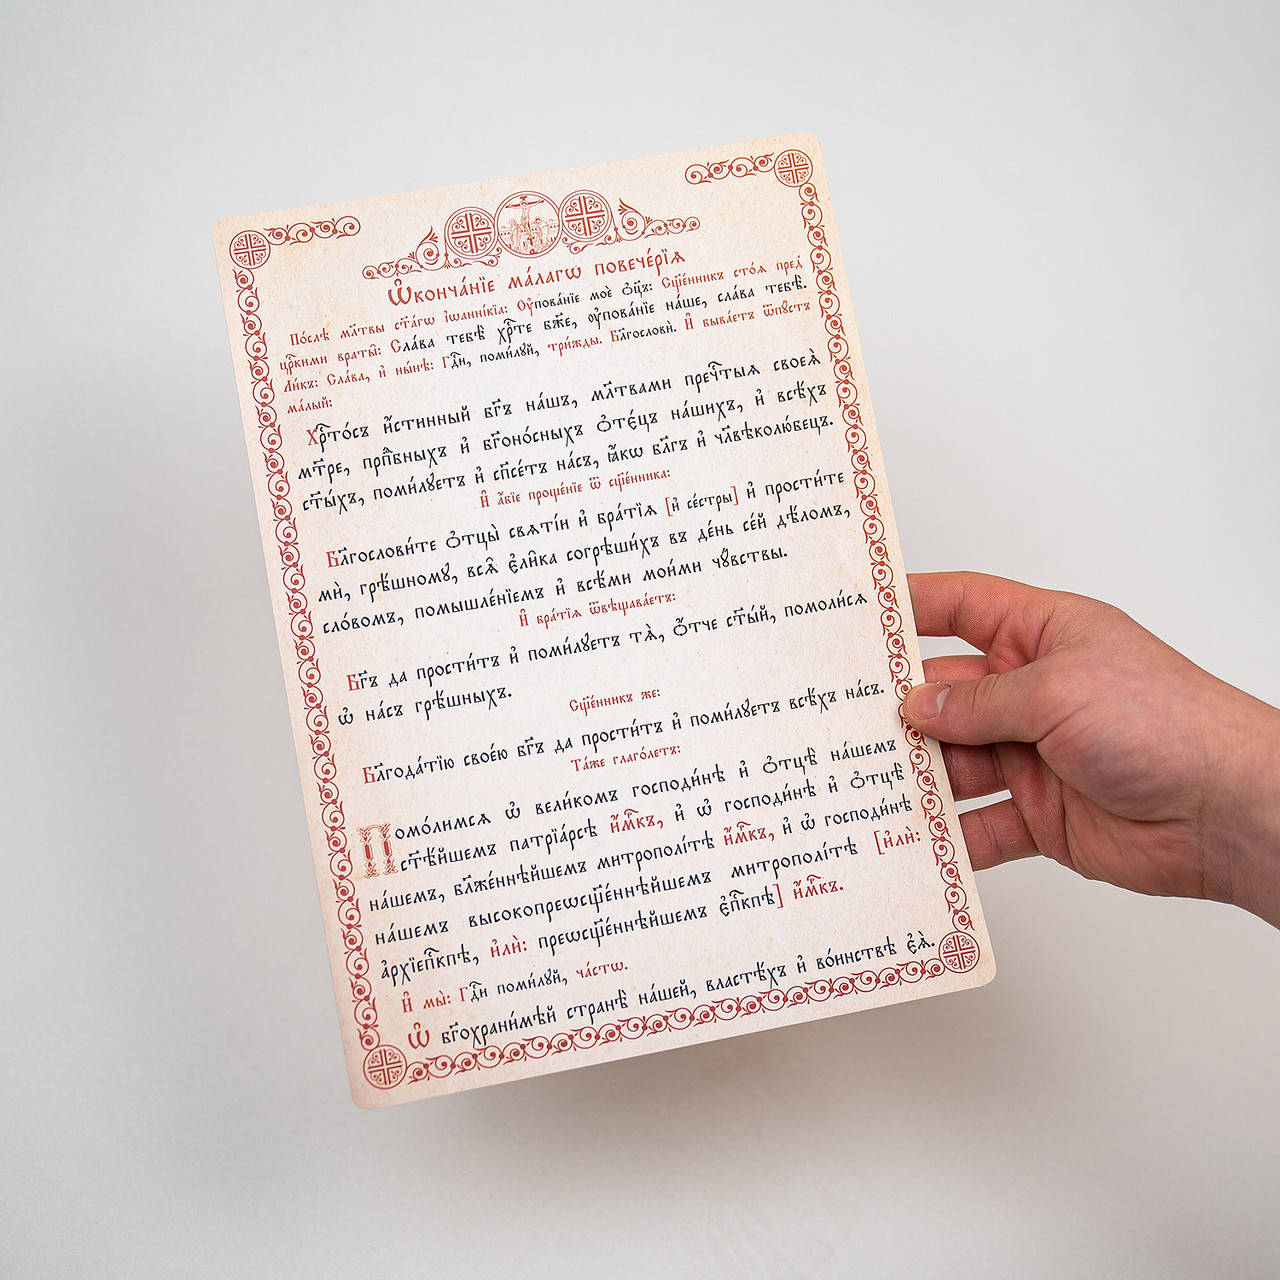 Ѡ҆конча́нїе ма́лагѡ повече́рїѧ
По́слѣ мл҃твы ст҃а́гѡ і҆ѡанні́кїа: Оу҆пова́нїе моѐ ѻ҆ц҃ъ: Сщ҃е́нникъ стоѧ̀ пред
цр҃кими враты̑: Сла́ва тебѣ̀ хрⷭ҇тѐ бж҃е, оу҆пова́нїе на́ше, сла́ва тебѣ̀.
Ли́къ: Сла́ва, и҆ ны́нѣ: Гдⷭ҇и, поми́лꙋй, три́жды. Бл҃гословѝ. И҆ быва́етъ ѿпꙋ́стъ
ма́лый:
Хрⷭ҇то́съ и҆́стинный бг҃ъ на́шъ, мл҃твами пречⷭ҇тыѧ своеѧ̀
мт҃ре, прпⷣбныхъ и҆ бг҃оно́сныхъ ѻ҆те́цъ на́шихъ, и҆ всѣ́хъ
ст҃ы́хъ, поми́лꙋетъ и҆ сп҃се́тъ на́съ, ꙗ҆́кѡ бл҃гъ и҆ чл҃вѣколю́бецъ.
И҆ а҆́бїе проще́нїе ѿ сщ҃е́нника:
Бл҃гослови́те ѻ҆тцы̀ свѧті́и и҆ бра́тїѧ [и҆ се́стры] и҆ прости́те
мѝ, грѣ́шномꙋ, всѧ̑ є҆ли̑ка согрѣши́хъ въ де́нь се́й дѣ́ломъ,
сло́вомъ, помышле́нїемъ и҆ всѣ́ми мои́ми чꙋ̑вствы.
И҆ бра́тїѧ ѿвѣщава́етъ:
Бг҃ъ да прости́тъ и҆ поми́лꙋетъ тѧ̀, ѻ҆́тче ст҃ы́й, помоли́сѧ
ѡ҆ на́съ грѣ́шныхъ.
Сщ҃е́нникъ же:
Бл҃года́тїю свое́ю бг҃ъ да прости́тъ и҆ поми́лꙋетъ всѣ́хъ на́съ.
Та́же глаго́летъ:
Помо́лимсѧ ѡ҆ вели́комъ господи́нѣ и҆ ѻ҆тцѣ̀ на́шемъ
ст҃ѣ́йшемъ патрїа́рсѣ и҆́мⷬ҇къ, и҆ ѡ҆ господи́нѣ и҆ ѻ҆тцѣ̀
на́шемъ, бл҃же́ннѣйшемъ митрополі́тѣ и҆́мⷬ҇къ, и҆ ѡ҆ господи́нѣ
на́шемъ высокопреѡсщ҃е́ннѣйшемъ митрополі́тѣ [и҆лѝ:
а҆рхїепⷭ҇кпѣ, и҆лѝ: преѡсщ҃е́ннѣйшемъ є҆пⷭ҇кпѣ] и҆́мⷬ҇къ.
И҆ мы̀: Гдⷭ҇и поми́лꙋй, ча́стѡ.
Ѡ҆ бг҃охрани́мѣй странѣ̀ на́шей, власте́хъ и҆ во́инствѣ є҆ѧ̀.